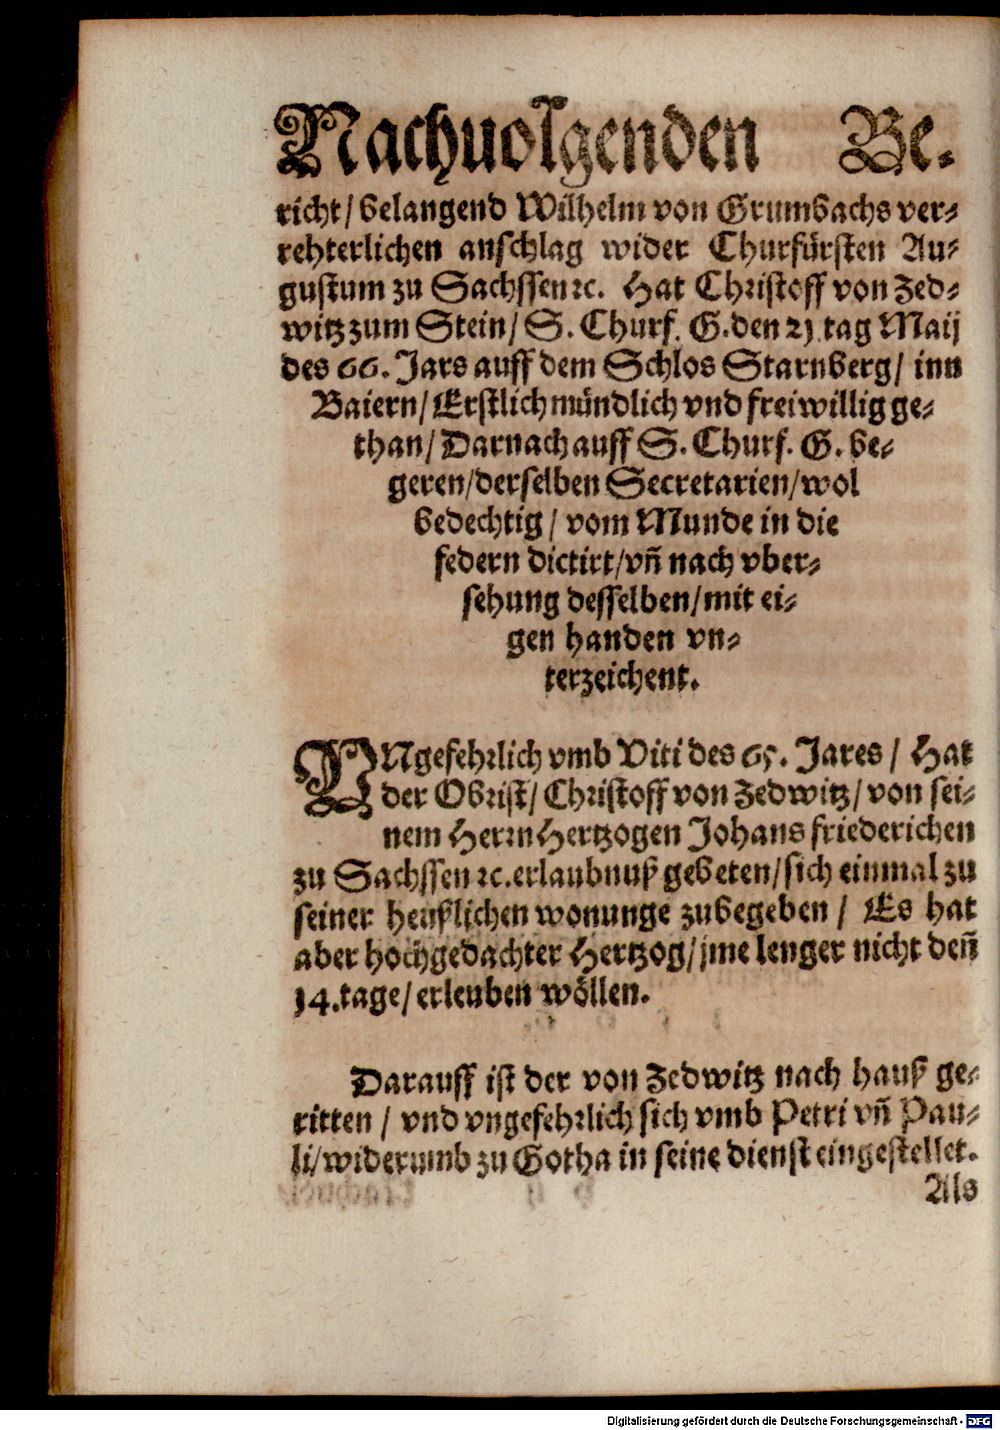 Nachuolgenden Be-
richt/ belangend Wilhelm von Grumbachs ver-
rehterlichen anschlag wider Churfürsten Au-
gustum zu Sachssen ꝛc. Hat Christoff von Zed-
witz zum Stein/ S. Churf. G. den 21 tag Maij
des 66. Jars auff dem Schlos Starnberg/ inn
Baiern/ Erstlich mündlich vnd freiwillig ge-
than/ Darnach auff S. Churf. G. be-
geren/ derselben Secretarien/ wol
bedechtig/ vom Munde in die
federn dictirt/ vñ nach vber-
sehung desselben/ mit ei-
gen handen vn-
terzeichent.
VNgefehrlich vmb Viti des 65. Jares/ Hat
der Obrist/ Christoff von Zedwitz/ von sei-
nem Herrn Hertzogen Johans friederichen
zu Sachssen ꝛc. erlaubnuß gebeten/ sich einmal zu
seiner heußlichen wonunge zubegeben/ Es hat
aber hochgedachter Hertzog/ jme lenger nicht deñ
14. tage/ erleuben wöllen.
Darauff ist der von Zedwitz nach hauß ge-
ritten/ vnd vngefehrlich sich vmb Petri vñ Pau-
li/ widerumb zu Gotha in seine dienst eingestellet.
Als
Digitalisierung gefördert durch die Deutsche Forschungsgemeinschaft - DFG